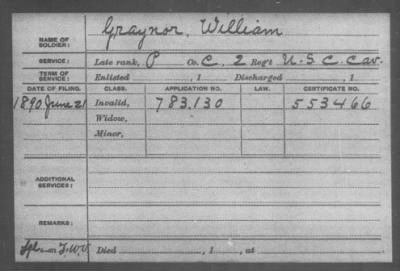 NAME OF SOLDIER: Graynor, William
SERVICE: Late rank, P Co. C, 2 Reg't U.S.C. Cav.
TERM OF SERVICE: Enlisted , 1 Discharged , 1
DATE OF FILING. CLASS. APPLICATION NO. LAW. CERTIFICATE NO.
1890 June 21 Invalid, 783.130 553466
Widow,
Minor,
ADDITIONAL SERVICES:
REMARKS:
Died , 1 , at